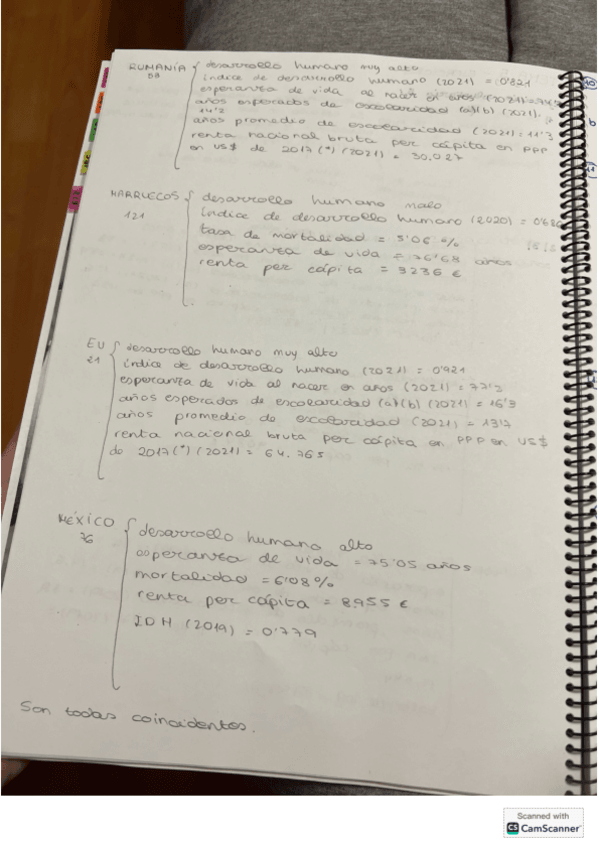 RUMANÍA desarrollo humano muy alto
índice de desarrollo humano (2021) = 0'821
esperanza de vida al nacer en años (2021) = 74'2
años esperados de escolaridad (a)(b) (2021).
14'2
años promedio de escolaridad (2021) = 11'3
renta nacional bruta per cápita en PPP
en US$ de 2017 (*) (2021) = 30.027
MARRUECOS desarrollo humano malo
121 índice de desarrollo humano (2020) = 0'686
tasa de mortalidad = 5'06 %
esperanza de vida = 76'68 años
renta per cápita = 3236 €
EU desarrollo humano muy alto
21 índice de desarrollo humano (2021) = 0'921
esperanza de vida al nacer en años (2021) = 77'2
años esperados de escolaridad (a)(b) (2021) = 16'3
años promedio de escolaridad (2021) = 13'7
renta nacional bruta per cápita en PPP en US$
de 2017 (*) (2021) = 64.765
MÉXICO desarrollo humano alto
76 esperanza de vida = 75'05 años
mortalidad = 6'08 %
renta per cápita = 8955 €
IDH (2019) = 0'779
Son todas coincidentes.
Scanned with
CS CamScanner